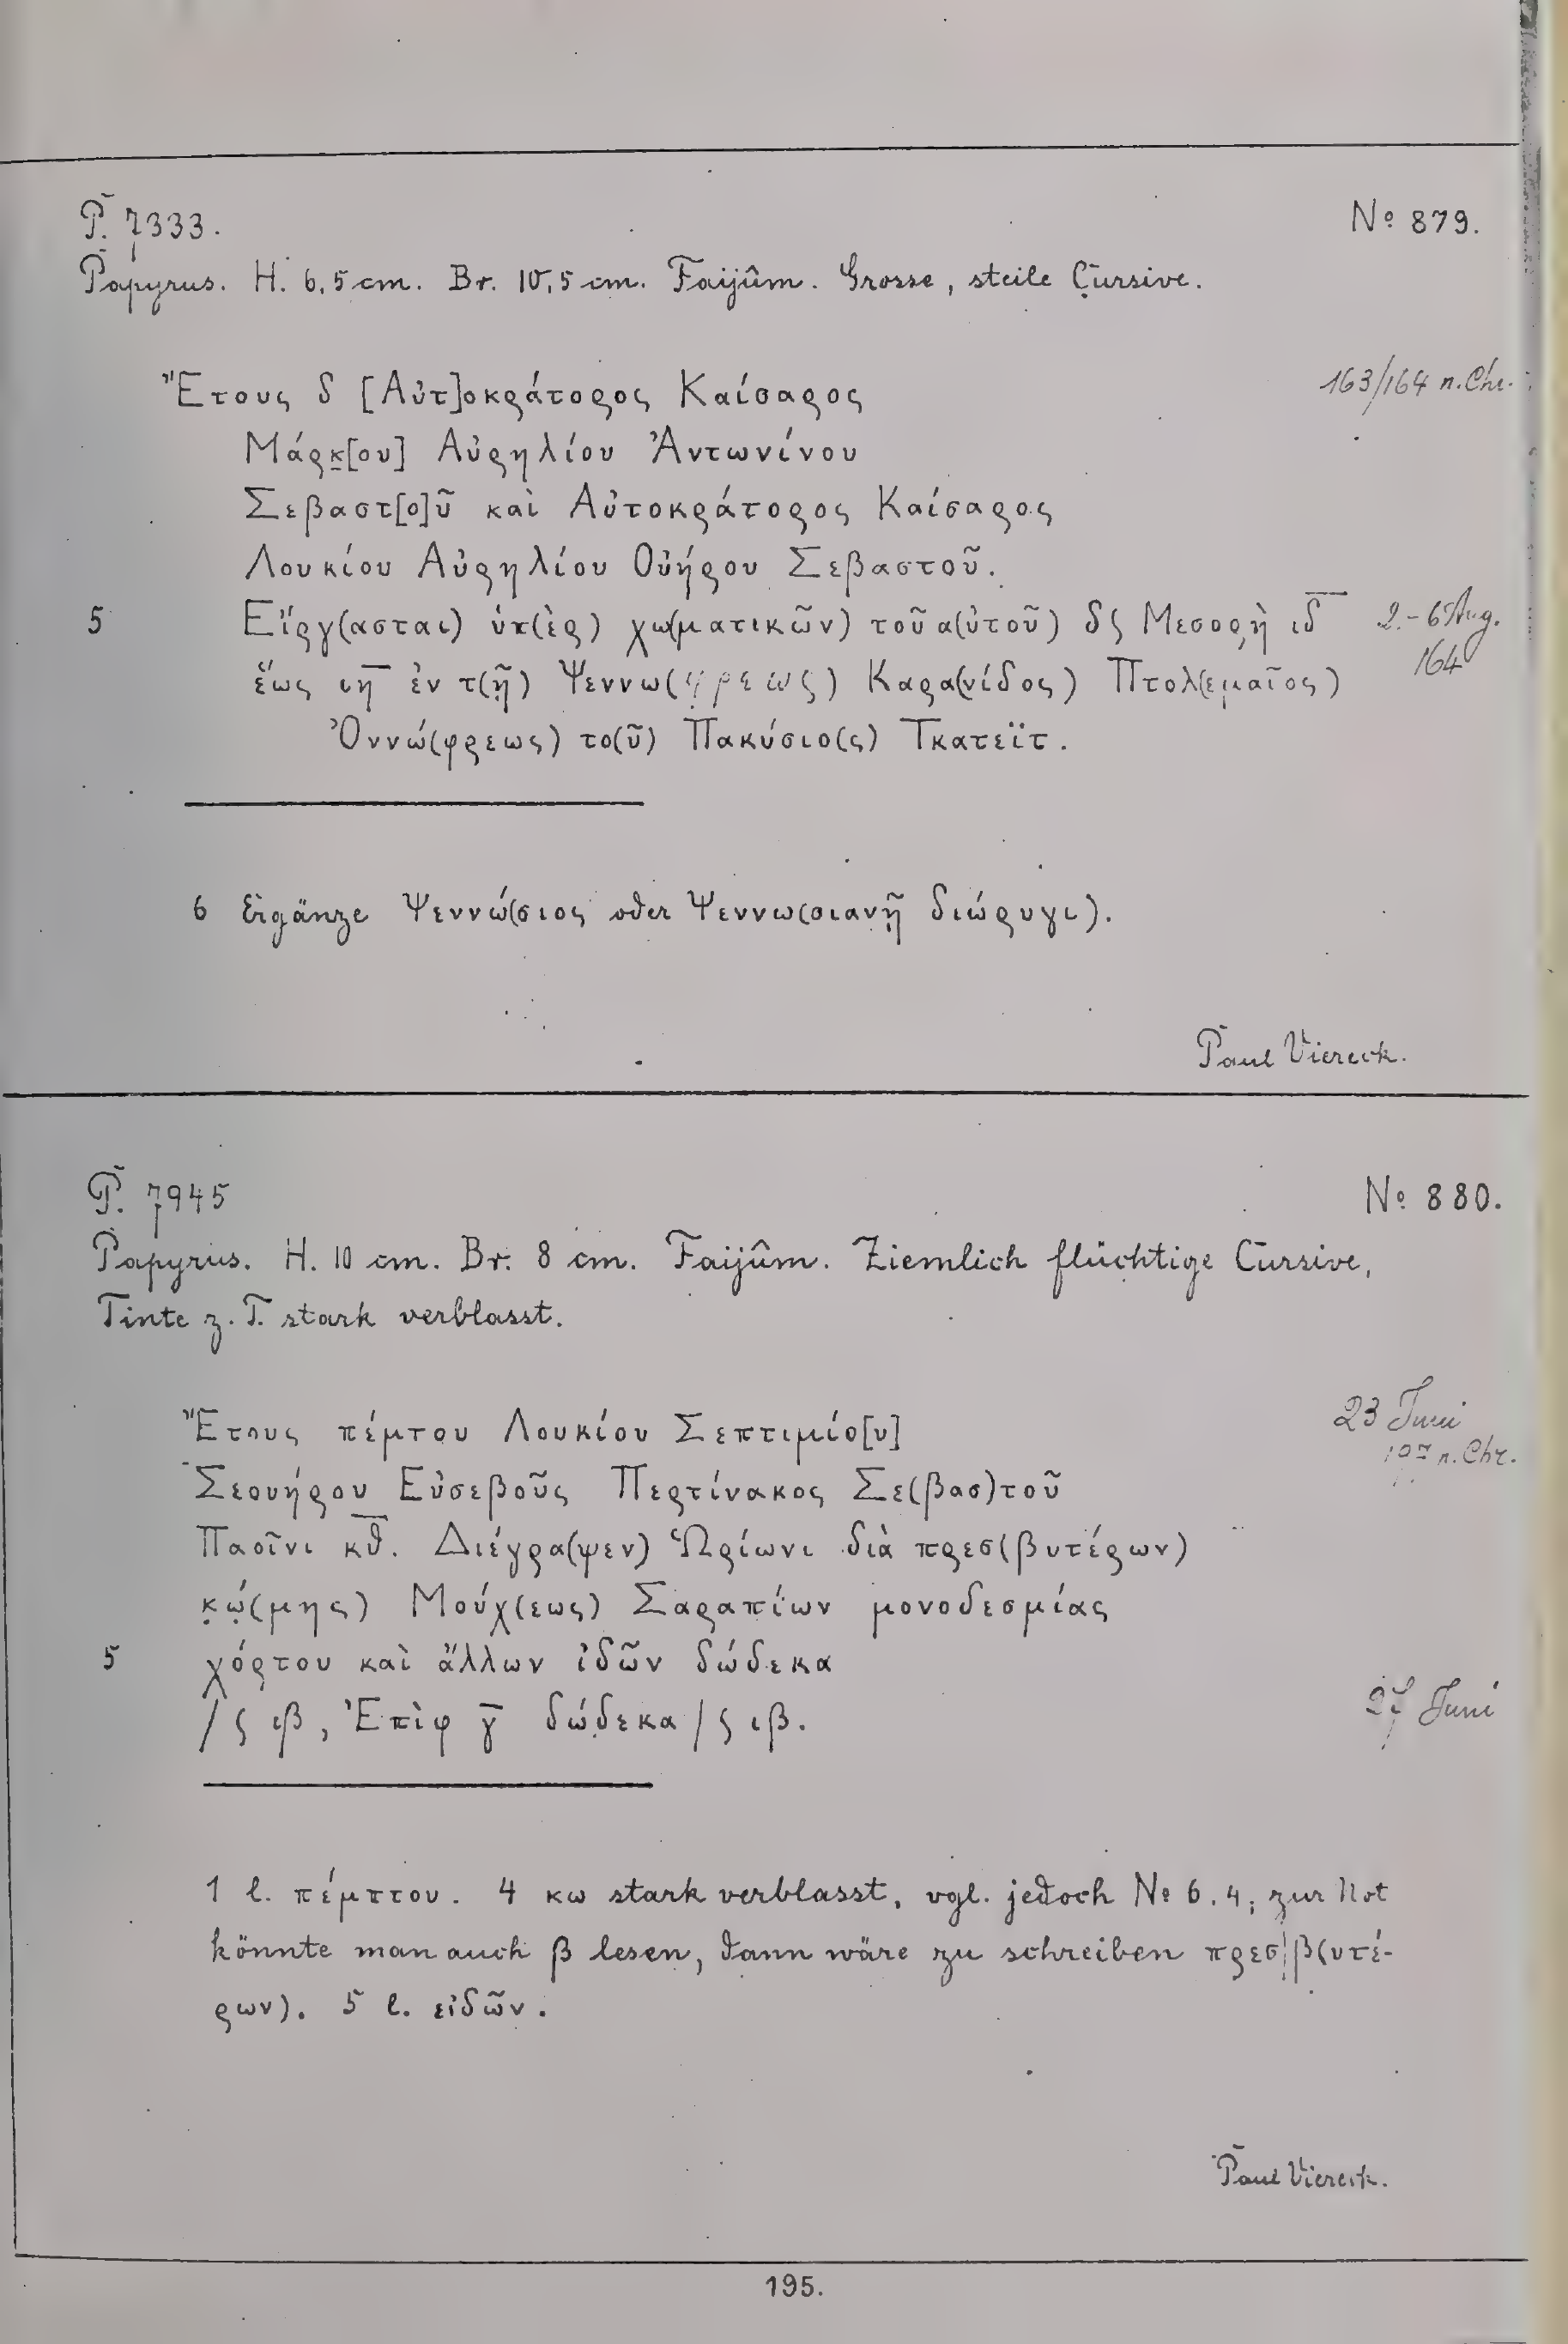 P. 7333. No 879.
Papyrus. H. 6,5 cm. Br. 10,5 cm. Faijûm. Grosse, steile Cursive.
Ἔτους δ [Αὐτ]οκράτορος Καίσαρος 163/164 n. Chr.
Μάρκ̣[ου] Αὐρηλίου Ἀντωνίνου
Σεβαστ[ο]ῦ καὶ Αὐτοκράτορος Καίσαρος
Λουκίου Αὐρηλίου Οὐήρου Σεβαστοῦ.
5 Εἴργ(ασται) ὑπ(ὲρ) χω(ματικῶν) τοῦ α(ὐτοῦ) δϛ Μεσορ̣ὴ ιδ̅ 2.-6 Aug.
ἕως ιη̅ ἐν τ(ῇ) Ψεννω(φρεως) Καρα(νίδος) Πτολ(εμαῖος) 164
Ὀννώ(φρεως) το(ῦ) Πακύσιο(ς) Τκατεϊτ.
6 Ergänze Ψεννώ(σιος oder Ψεννω(σιανῇ διώρυγι).
Paul Viereck.
P. 7945 No 880.
Papyrus. H. 10 cm. Br. 8 cm. Faijûm. Ziemlich flüchtige Cursive,
Tinte z. T. stark verblasst.
Ἔτους πέμτου Λουκίου Σεπτιμίο[υ] 23 Juni
Σεουήρου Εὐσεβοῦς Περτίνακος Σε(βασ)τοῦ 197 n. Chr.
Παοῖνι κθ̅. Διέγρα(ψεν) Ὡρίωνι διὰ πρεσ(βυτέρων)
κ̣ώ̣(μης) Μούχ(εως) Σαραπίων μονοδεσμίας
5 χόρτου καὶ ἄλλων ἰδῶν δώδεκα
/ ϛ ιβ, Ἐπὶφ γ̅ δώδεκα / ϛ ιβ. 27 Juni
1 l. πέμπτου. 4 κω stark verblasst, vgl. jedoch No 6. 4; zur Not
könnte man auch β lesen, dann wäre zu schreiben πρεσ|β(υτέ-
ρων). 5 l. εἰδῶν.
Paul Viereck.
195.